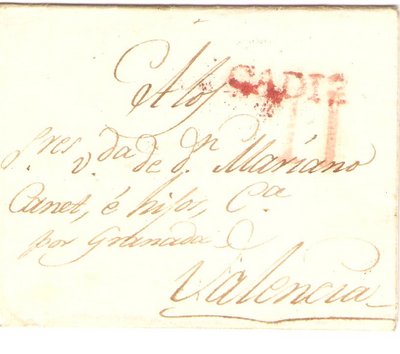 CADIZ
A los
S.res v.da de d.n Mariano
Canet, é hijos, C.a
por Granada
Valencia